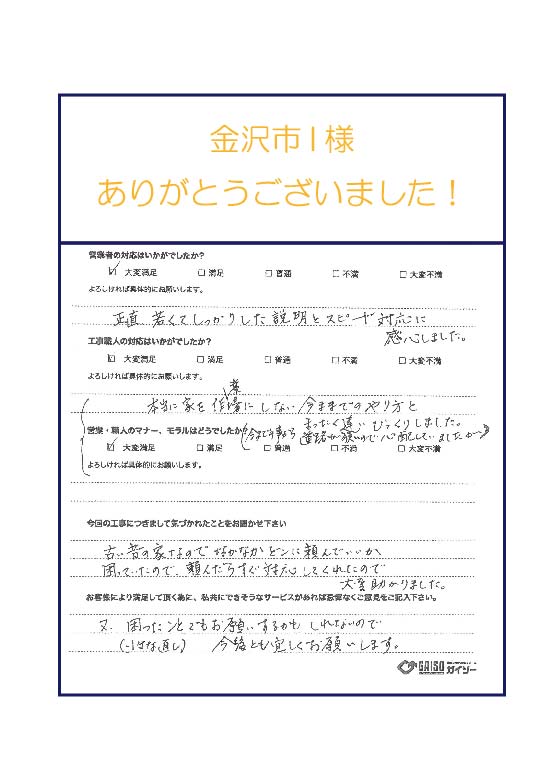 金沢市I様
ありがとうございました！
営業者の対応はいかがでしたか？
☑ 大変満足 □ 満足 □ 普通 □ 不満 □ 大変不満
よろしければ具体的にお願いします。
正直 若くてしっかりした説明とスピード対応に
感心しました。
工事職人の対応はいかがでしたか？
☑ 大変満足 □ 満足 □ 普通 □ 不満 □ 大変不満
よろしければ具体的にお願いします。
業
本当に家を作場にしない今までのやり方と
まったく違い びっくりしました。
営業・職人のマナー、モラルはどうでしたか？
道路が狭いので心配していましたが
☑ 大変満足 □ 満足 □ 普通 □ 不満 □ 大変不満
よろしければ具体的にお願いします。
今回の工事につきまして気づかれたことをお聞かせ下さい
古い昔の家なので なかなかどこに頼んでいいか
困っていたので、頼んだらすぐ対応してくれたので
大変助かりました。
お客様により満足して頂く為に、私共にできそうなサービスがあれば忌憚なくご意見をご記入下さい。
又、困ったことでもお願いするかも しれないので
今後とも宜しくお願いします。
GAISO
ガイソー